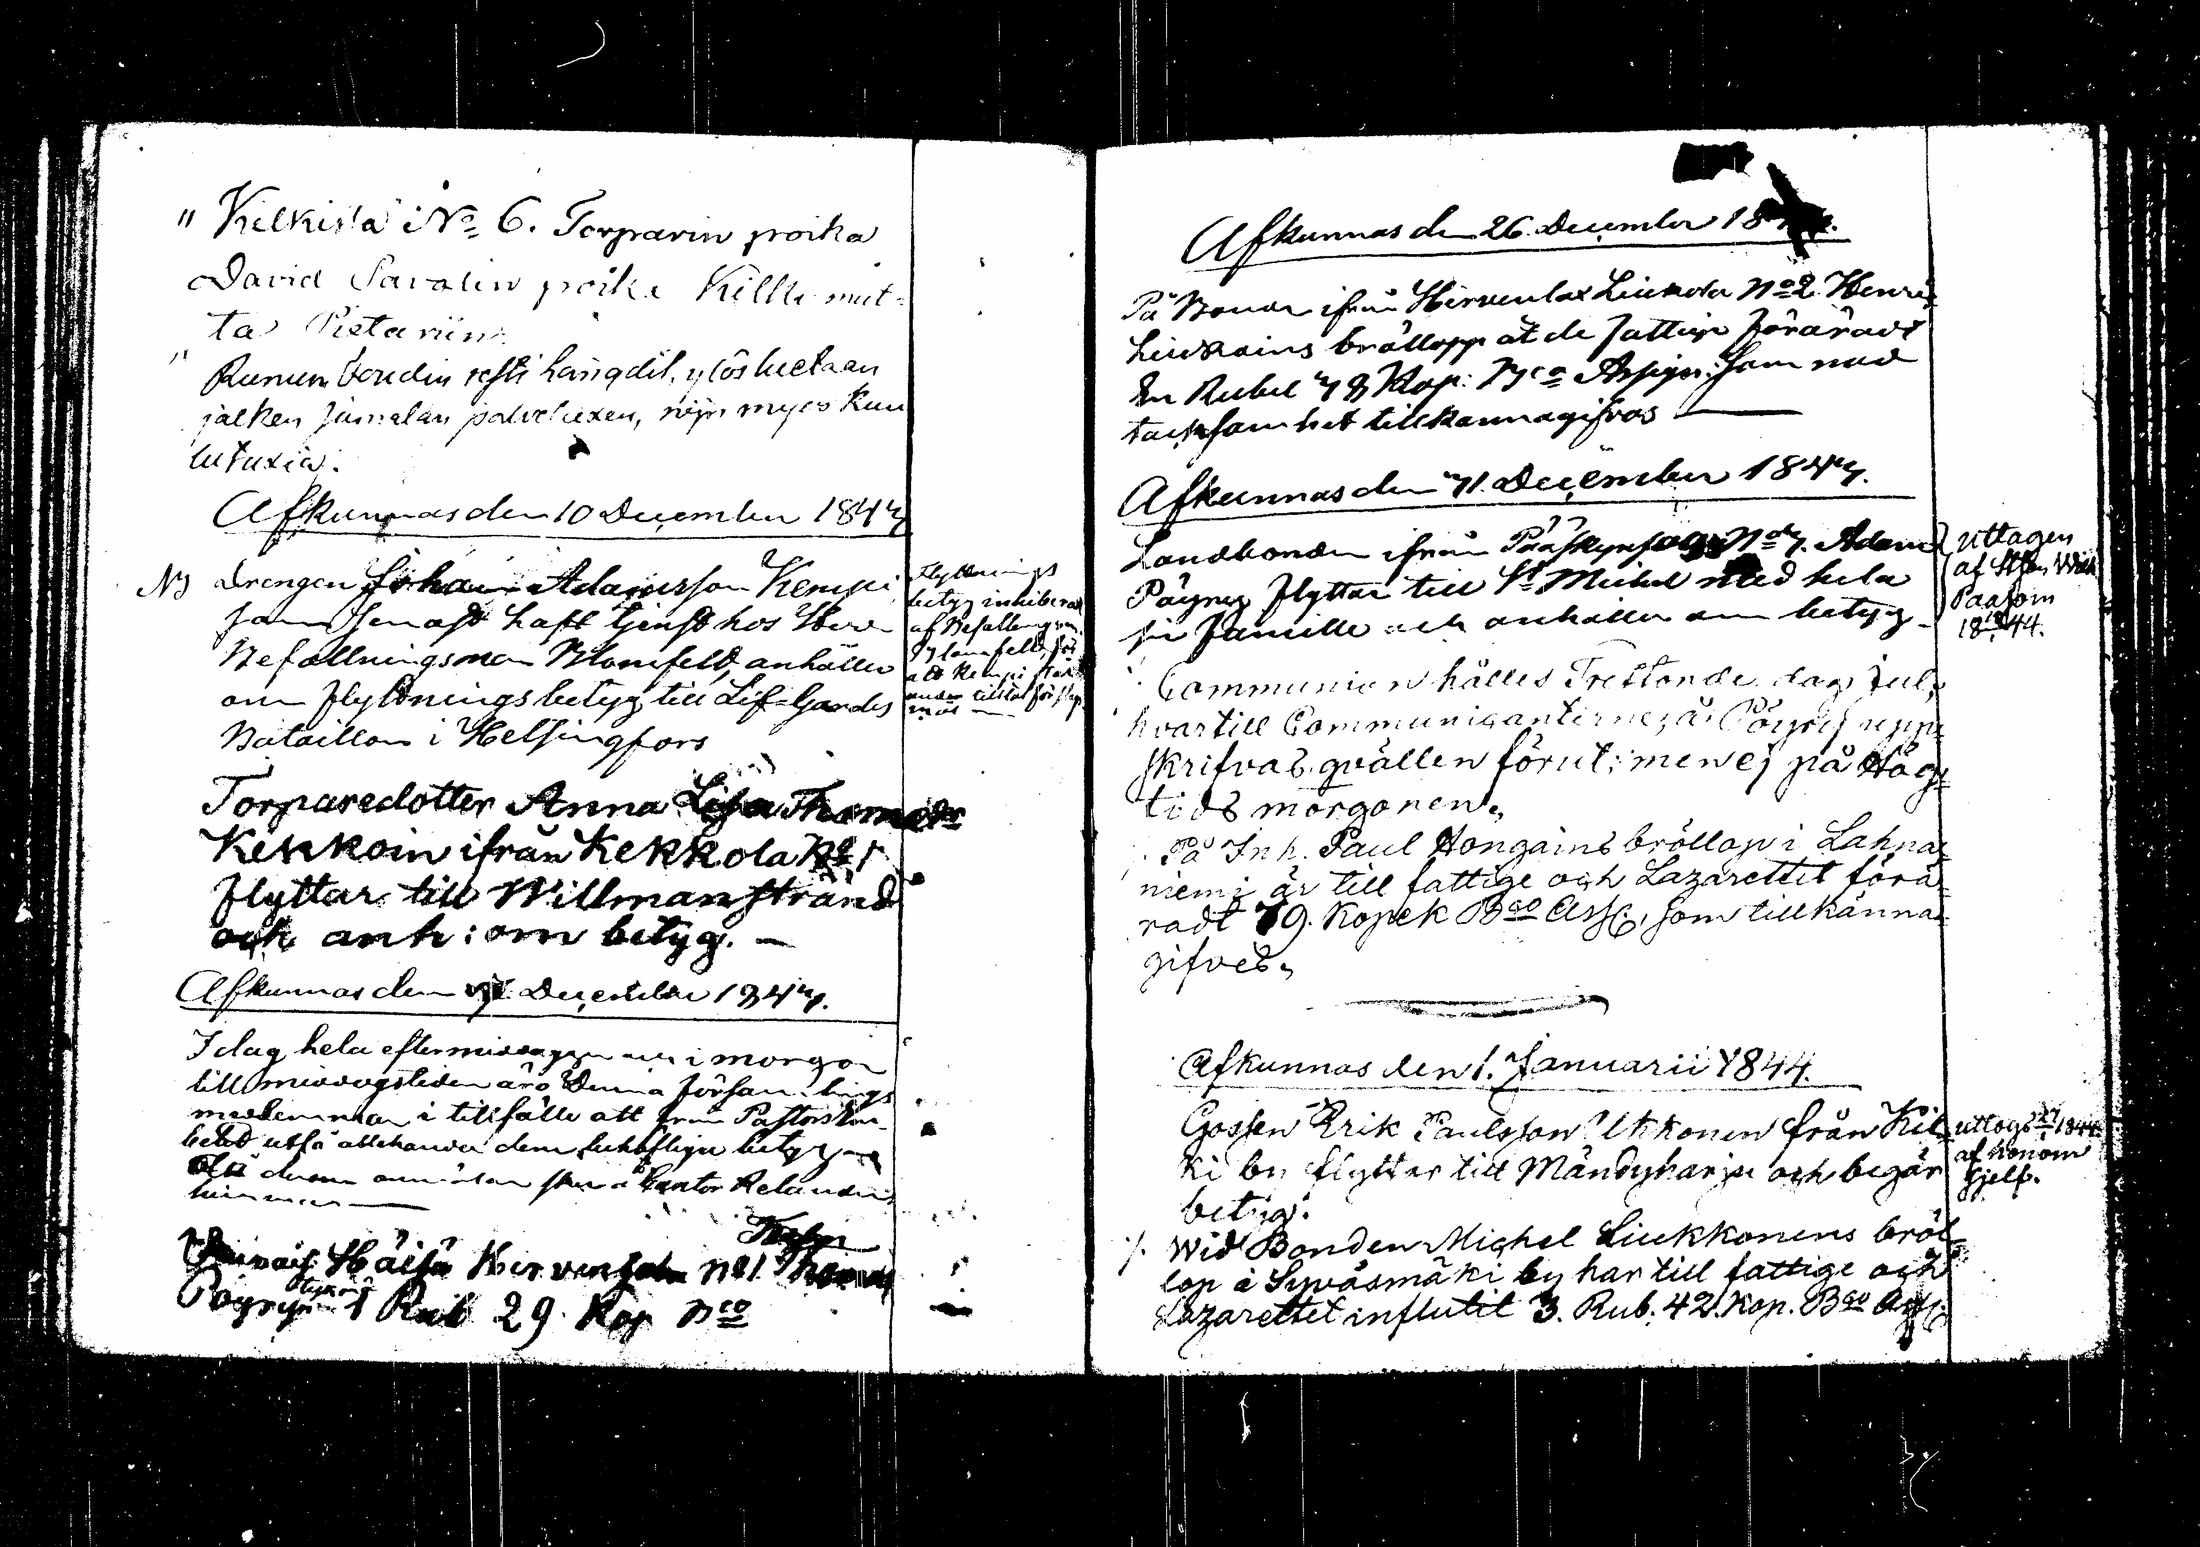 " Kilkislä No 6. Torparin poika
David Savolin poika Kille mut-
ta Pietariin.
" Runun Voudin resti längdit, ylösluetaan
jälken Jumalan palveluxen, nijn myös kuu
lutuxia.
Afkunnas den 10 December 1843
NB Drengen Johan Adamsson Kempi
som senast haft tjenst hos Herr
Befallningsman Blomfeldt, anhåller
om flyttningsbetyg till Lif-Gardes
Bataillon i Helsingfors
Flyttnings
betyg inhiberad
af Befallningsm.
Blomfeldt, för
att Kempi
Torparedotter Anna Lisa Thomsdr
Kekkoin ifrån Kekkola No 1
flyttar till Willmanstrand
och anh: om betyg. —
Afkunnas den December 1843.
I dag hela eftermiddagen och i morgon
till middagstiden äro Denna Församlings
medlemmar i tillfälle att från Pastors
utfå allehanda dem behöfliga betyg
Cantor Relanders
Häisä Hirvensalo No 1. Thomas
Pöyry 1 Rub 29. Kop Bco
Afkunnas den 26. December 18
På Bonden ifrån Hirvenlax Liukola No 2. Henric
Liukkoins bröllopp åt de fattige föräradt
En Rubel 38 Kop: Bco Assign: som med
tacksamhet tillkännagifvas —
Afkunnas den 31. December 1843.
Landbonden ifrån No 3. Adam
Pöyry flyttar till St Michel med hela
sin familie och anhåller om betyg
uttagen
af
Paasoin
18 44.
Communion hålles Trettonde dag jul,
hvartill Communicanterne, å Pöyry upp-
skrifvas qvällen förut; men ej på Hög-
tids morgonen.
På Inh. Paul Hongains bröllop i Lahna-
niemi är till fattige och Lazarettet förä-
radt 79. Kopek Bco Ass; som tillkänna-
gifves.
Afkunnas den 1. Januarii 1844.
Gossen Erik Paulsson Ukkonen från Kil-
ki by flyttar till Mändyharju och begär
betyg.
uttogs 1844
af honom
sjelf.
./. Wid Bonden Michel Liukkonens bröl-
lop å Syväsmäki by har till fattige och
Lazarettet influtit 3. Rub. 42. Kop. Bco Ass;